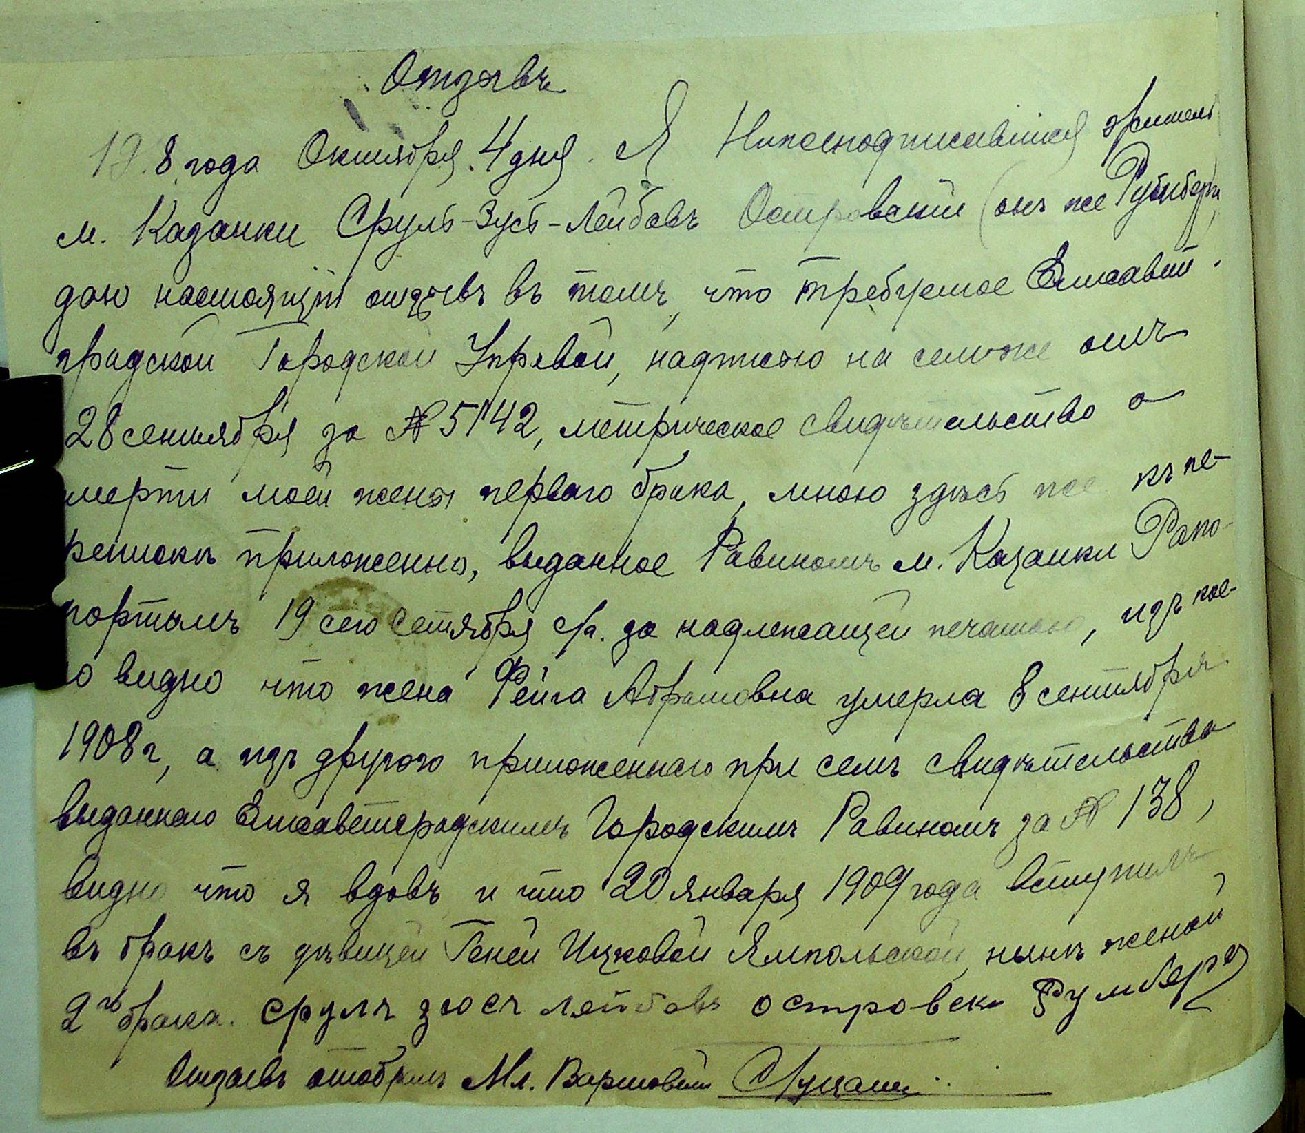 Отзывъ
19 8 года Октября 4 дня. Я Нижеподписавшійся житель
м. Казанки Сруль-Зусь-Лейбовъ Островскій (онъ же
даю настоящій отзывъ въ томъ, что требуемое Елисавет
градской Городской Управой, надписью на семъ же отъ
28 сентября за № 5142, метрическое свидѣтельство о
смерти моей жены перваго брака, мною здѣсь же къ пе-
репискѣ приложенно, выданное Равиномъ м. Казанки Рапо-
портымъ 19 сего Сентября с/г. за надлежащей печатью, изъ кое-
го видно что жена Фейга Абрамовна умерла 8 сентября
1908 г, а изъ другого приложеннаго при семъ свидѣтельства
выданнаго Елисаветградскимъ Городскимъ Равиномъ за № 138,
видно что я вдовъ и что 20 января 1909 года вступилъ
въ бракъ съ дѣвицей Геней Ицковой Ямпольской, нынѣ женой
2го брака. сруль зюсь лейбовъ островски Румберг
Отзывъ отобралъ Мл.